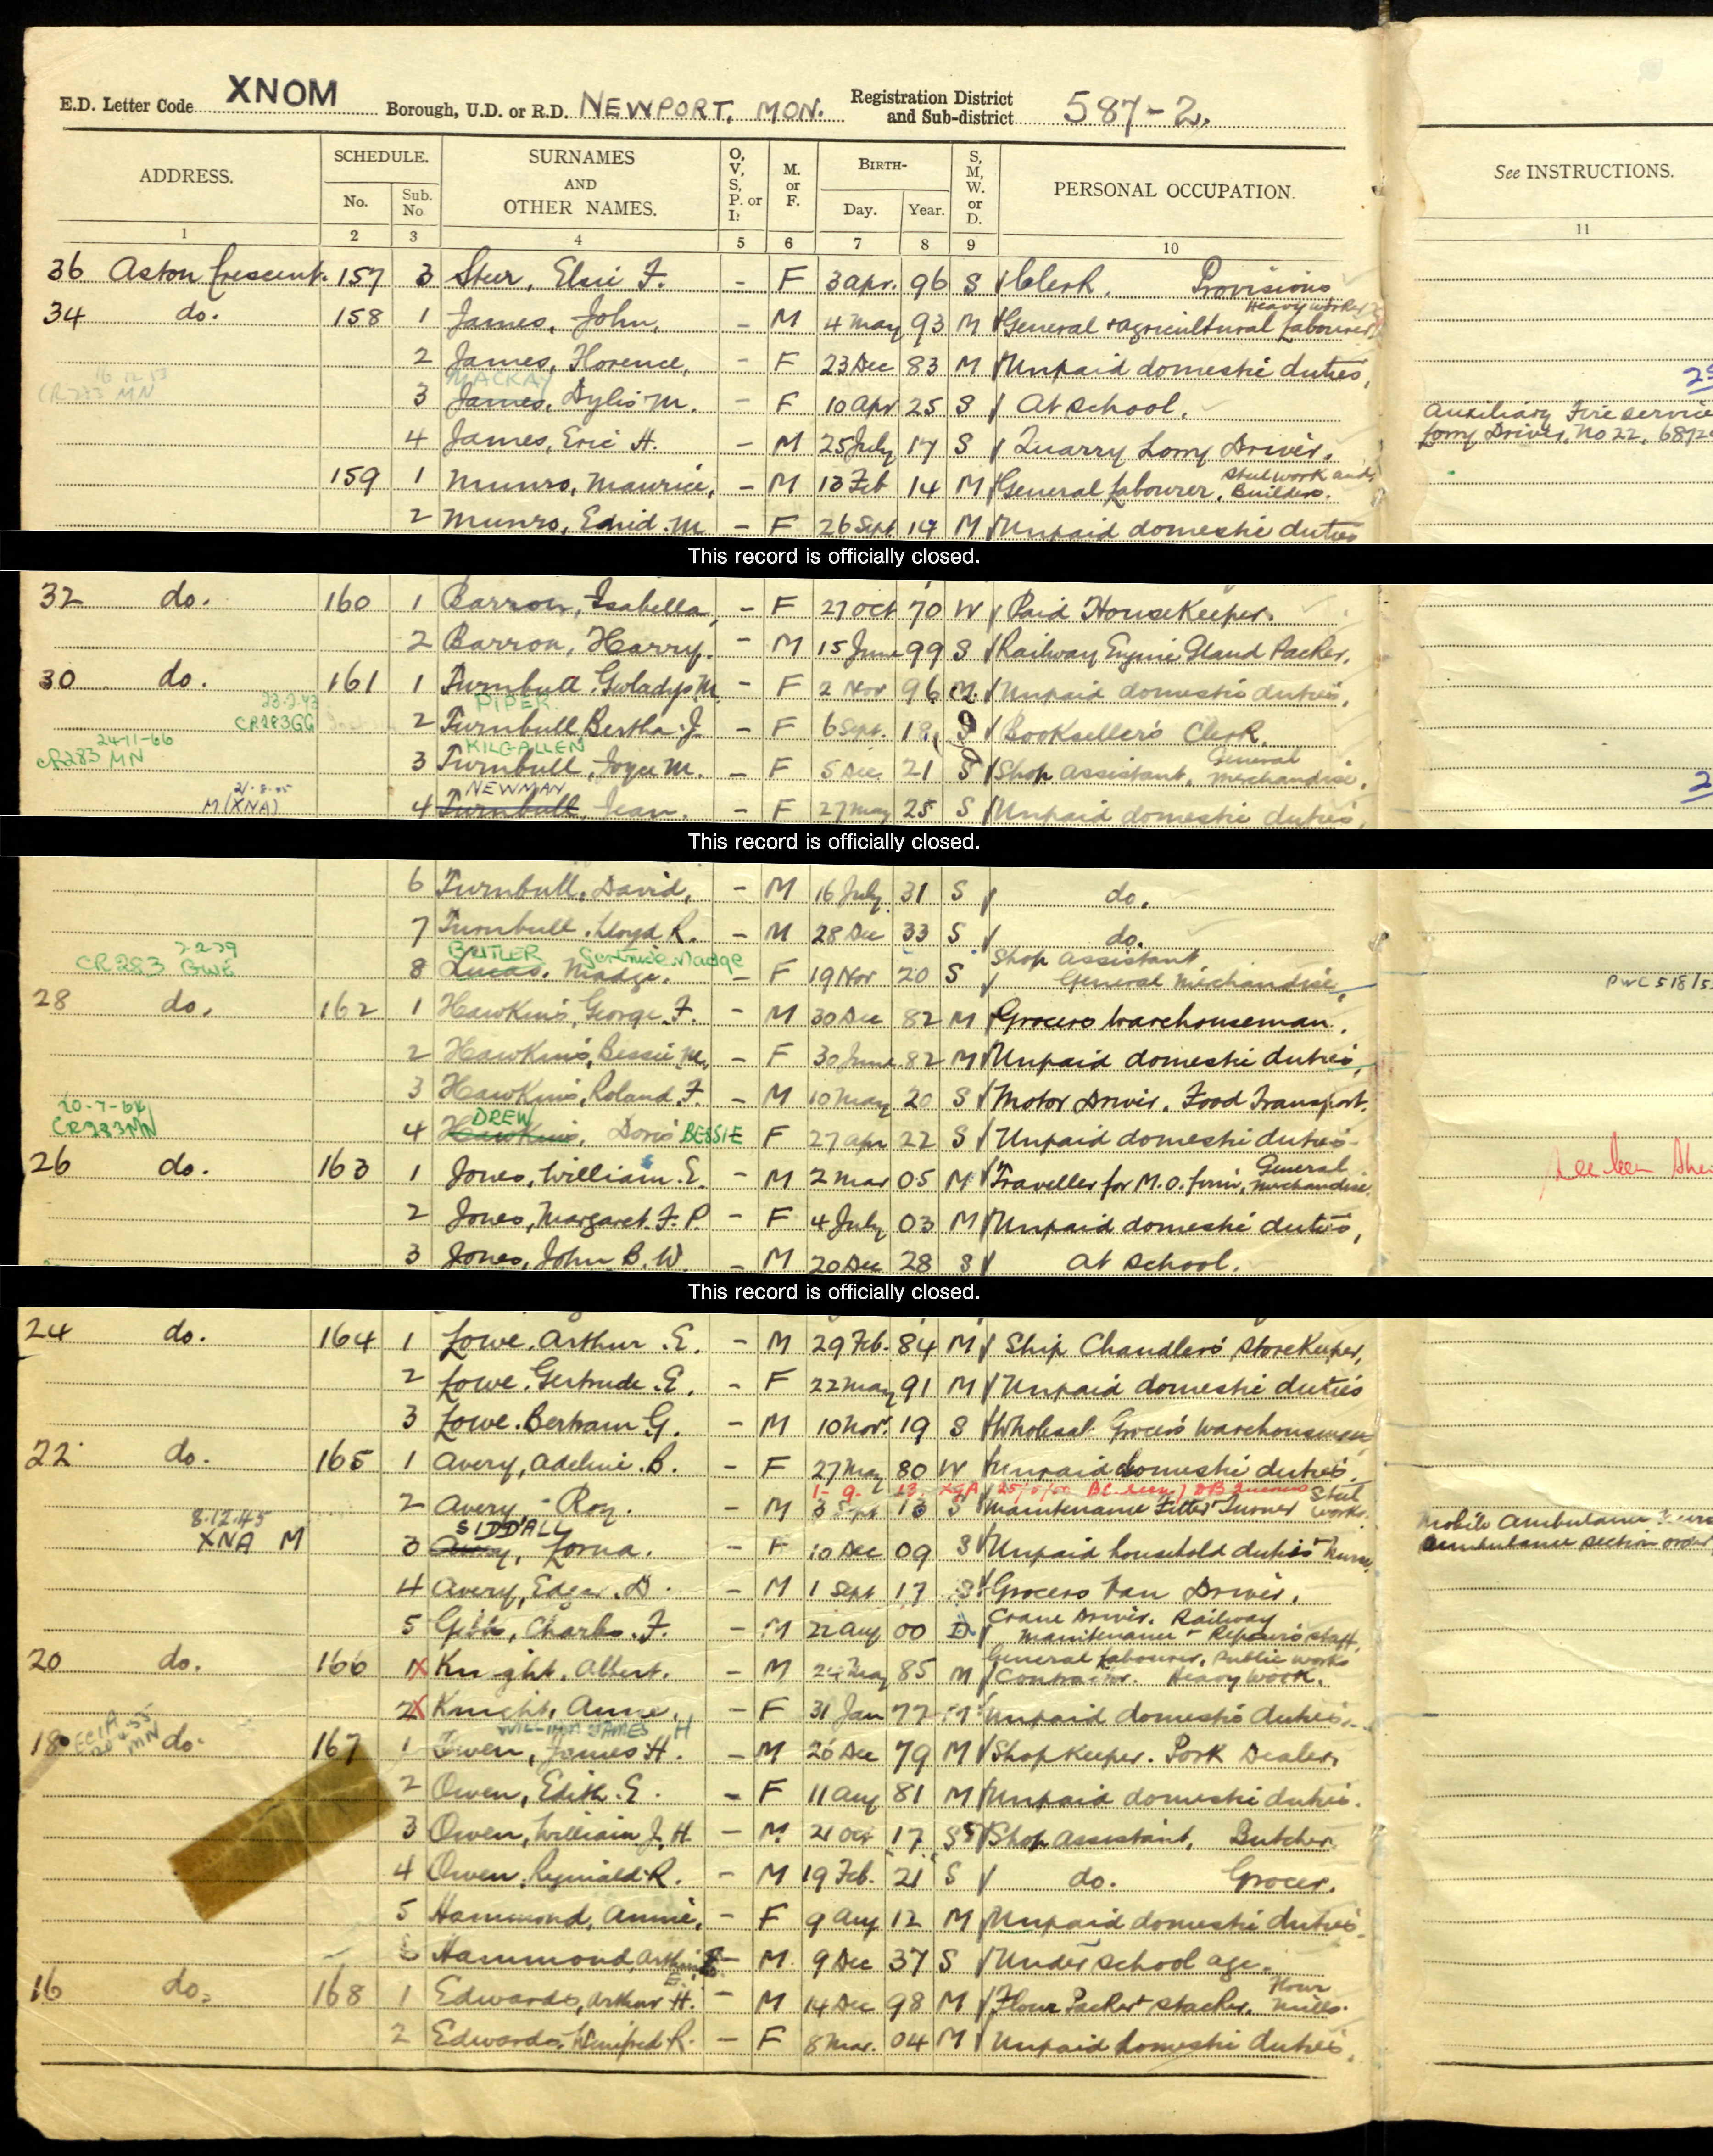 E.D. Letter Code XNOM Borough, U.D. or R.D. NEWPORT, MON. Registration District and Sub-district 587-2.
ADDRESS. SCHEDULE. No. Sub. No SURNAMES AND OTHER NAMES. O, V, S, P. or I: M. or F. BIRTH- Day. Year. S, M, W. or D. PERSONAL OCCUPATION. See INSTRUCTIONS.
1 2 3 4 5 6 7 8 9 10 11
36 Aston Crescent. 157 3 Steer, Elsie F. - F 3 Apr. 96 S Clerk. Provisions
Heavy Worker
34 do. 158 1 James, John, - M 4 May 93 M General & agricultural labourer
2 James, Florence, - F 23 Dec 83 M Unpaid domestic duties,
16 12 53 MACKAY
CR283 MN 3 James, Dylis M. - F 10 Apr 25 S At school. Auxiliary Fire Service
4 James, Eric H. - M 25 July 17 S Quarry Lorry Driver. Lorry Driver, No 22,
159 1 Munro, Maurice, - M 13 Feb 14 M General labourer, Steelwork and Builders.
2 Munro, Enid. M - F 26 Sept 14 M Unpaid domestic duties
This record is officially closed.
32 do. 160 1 Barron, Isabella, - F 27 Oct 70 W Paid Housekeeper.
2 Barron, Harry. - M 15 June 99 S Railway Engine Gland Packer.
30 do. 161 1 Turnbull, Gwladys M - F 2 Nov 96 M. Unpaid domestic duties,
23.2.43 PIPER
CR283GG 2 Turnbull, Bertha J. - F 6 Sept. 18 S Bookseller's Clerk.
24-11-66 KILGALLEN
CR283 MN 3 Turnbull, Joyce M. - F 5 Dec 21 S Shop Assistant, General Merchandise,
21.8.45 NEWMAN
M(XNA) 4 Turnbull, Jean. - F 27 May 25 S Unpaid domestic duties,
This record is officially closed.
6 Turnbull, David, - M 16 July 31 S do.
7 Turnbull, Lloyd R. - M 28 Dec 33 S do.
BUTLER Gertrude Madge
CR283 GWE 8 Lucas, Madge. - F 19 Nov 20 S Shop Assistant General Merchandise,
28 do. 162 1 Hawkins, George. F. - M 30 Dec 82 M Grocers Warehouseman.
2 Hawkins, Bessie M, - F 30 June 82 M Unpaid domestic duties,
3 Hawkins, Roland. F. - M 10 May 20 S Motor Driver. Food Transport.
20-7-64 DREW
CR283MN 4 Hawkins, Doris BESSIE F 27 Apr 22 S Unpaid domestic duties
26 do. 163 1 Jones, William. E. - M 2 Mar 05 M Traveller for M.O. firm, General Merchandise.
2 Jones, Margaret. F. P. - F 4 July 03 M Unpaid domestic duties,
3 Jones, John B. W. - M 20 Dec 28 S At School.
This record is officially closed.
24 do. 164 1 Lowe, Arthur. E. - M 29 Feb. 84 M Ship Chandler's Storekeeper,
2 Lowe, Gertrude. E. - F 22 May 91 M Unpaid domestic duties
3 Lowe, Bertram G. - M 10 Nov. 19 S Wholesale Grocers Warehouseman
22 do. 165 1 Avery, Adeline. B. - F 27 May 80 W Unpaid domestic duties.
1- 9- 13
2 Avery - Roy. - M 3 Sept 13 S Maintenance Fitter Turner Steel Works.
8.12.45 SIDDALL
XNA M 3 Avery, Lorna. - F 10 Dec 09 S Unpaid household duties Nurse Mobile Ambulance
Ambulance Section
4 Avery, Edgar. D. - M 1 Sept 17 S Grocers Van Driver.
5 Gibbs, Charles. F. - M 22 Aug 00 D Crane Driver. Railway Maintenance & Repairs Staff.
20 do. 166 1X Knight, Albert. - M 24 May 85 M General Labourer, Public Works Contractor. Heavy Work.
2X Knight, Annie. - F 31 Jan 77 M Unpaid domestic duties.
WILLIAM JAMES H
18 do. 167 1 Owen, James H. - M 26 Dec 79 M Shopkeeper. Pork Dealer.
2 Owen, Edith. E. - F 11 Aug 81 M Unpaid domestic duties.
3 Owen, William J. H. - M 21 Oct 17 S Shop Assistant, Butcher.
4 Owen, Reginald R. - M 19 Feb. 21 S do. Grocer.
5 Hammond, Annie, - F 9 Aug 12 M Unpaid domestic duties.
6 Hammond, Arthur E. - M. 9 Dec 37 S Under school age.
16 do. 168 1 Edwards, Arthur H. - M 14 Dec 98 M Flour Packer & Stacker. Flour Mills.
2 Edwards, Winifred R. - F 8 Mar. 04 M Unpaid domestic duties,